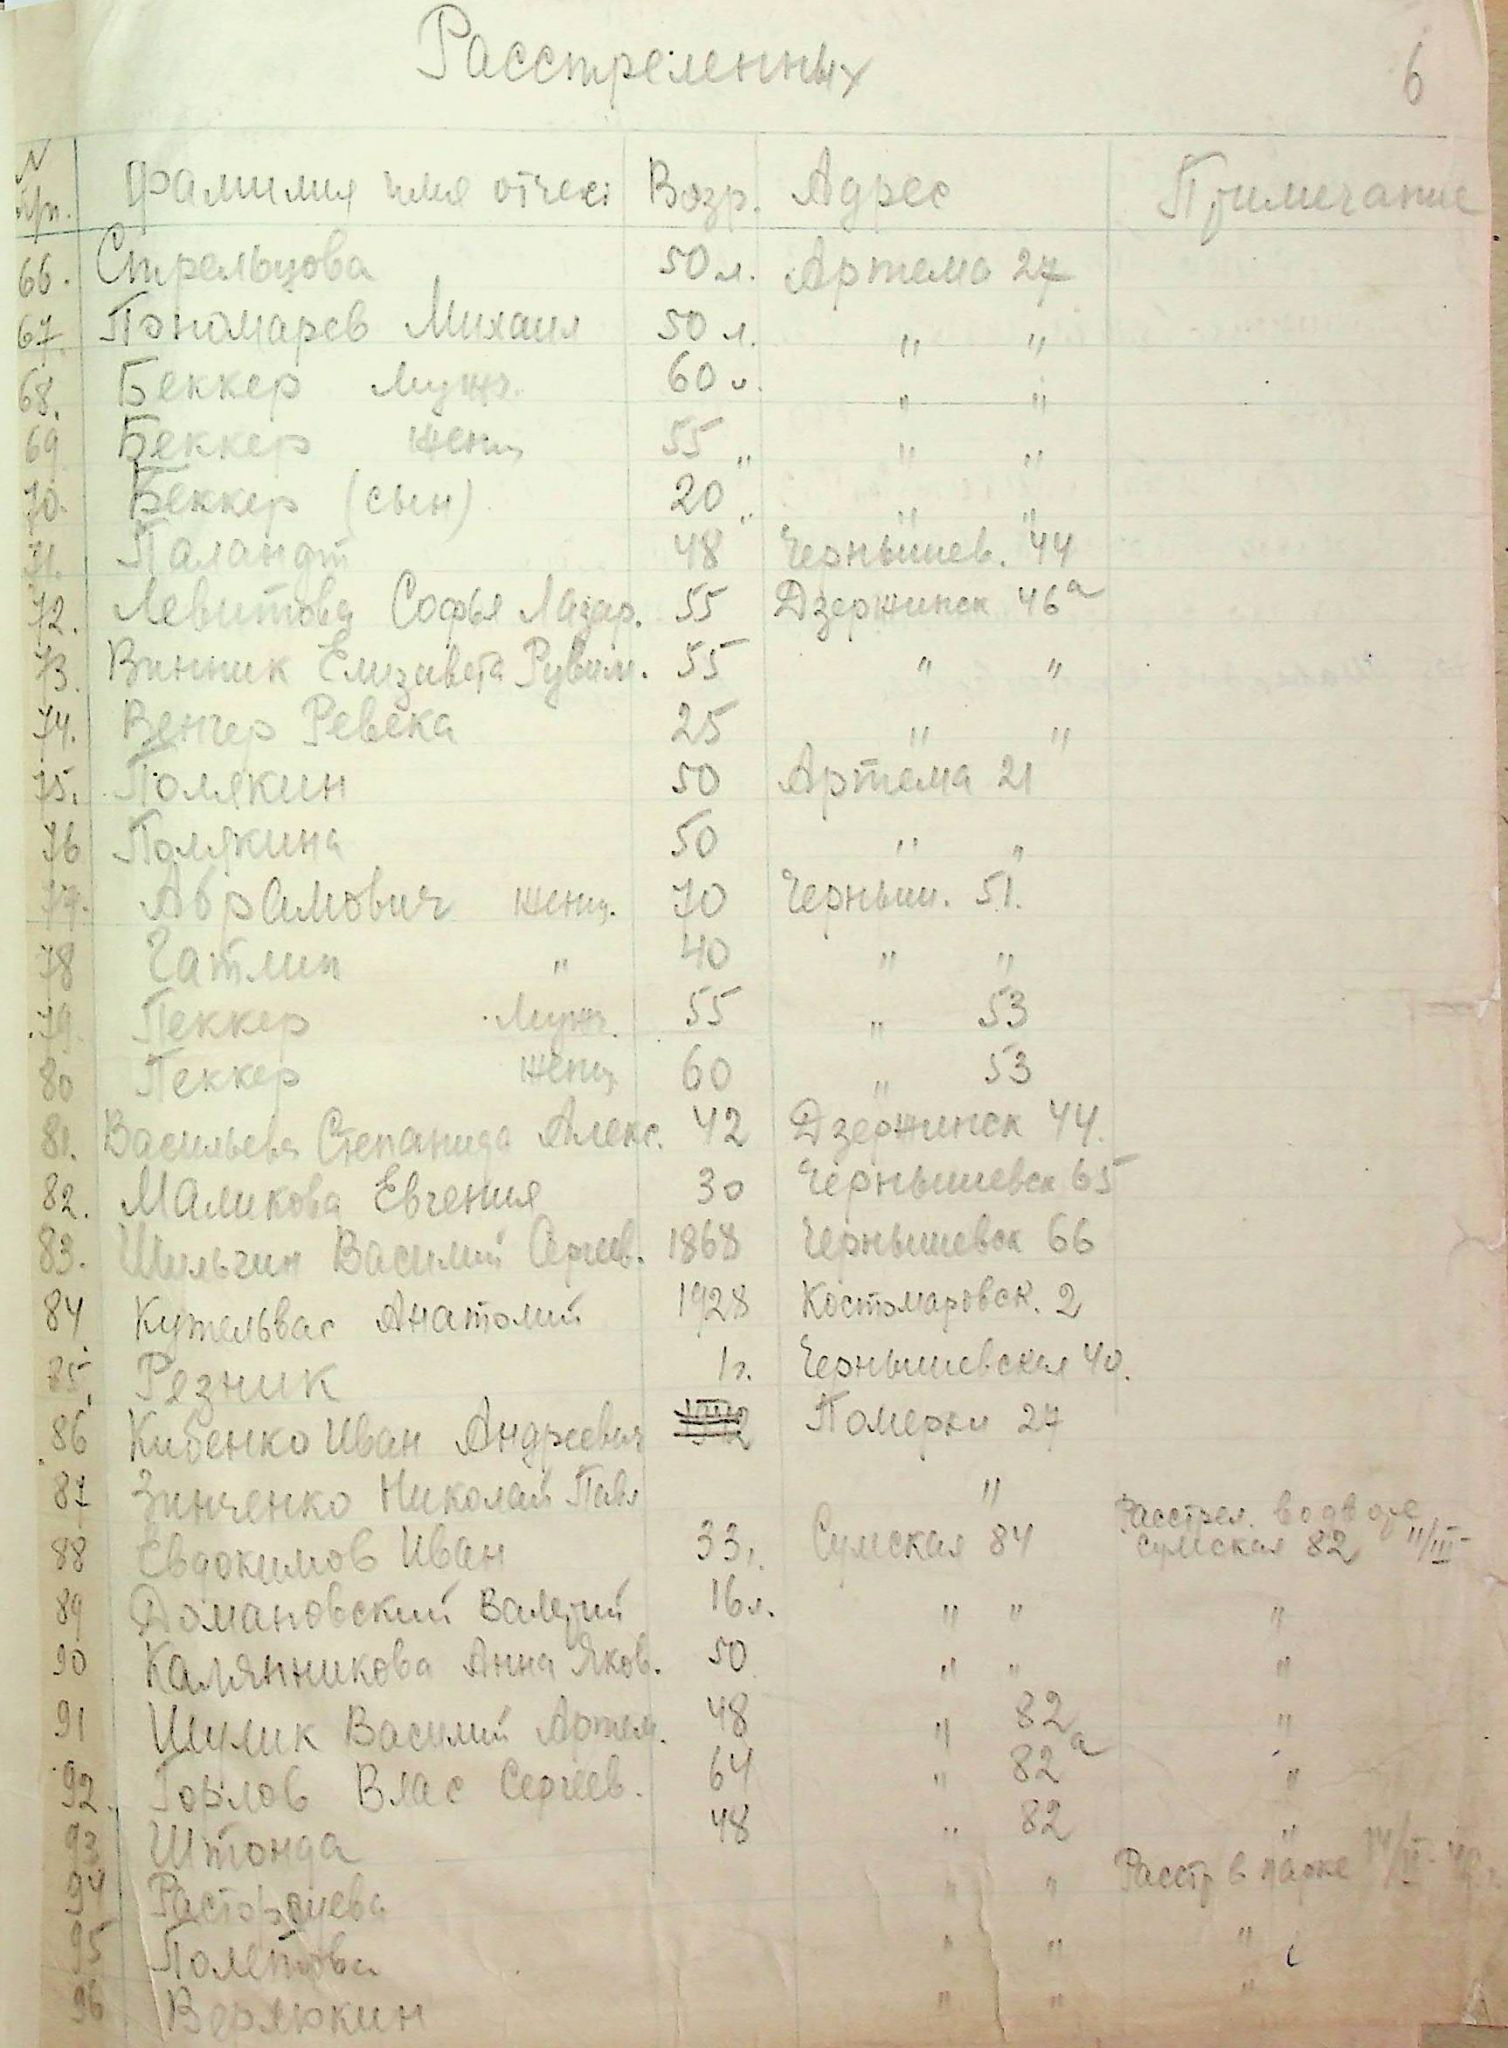 Расстреленных
6
N п/п. Фамилия имя отчес Возр. Адрес Примечание
66. Стрельцова 50 л. Артема 27
67. Пономарев Михаил 50 л. " "
68. Беккер Мужч. 60 л. " "
69 Беккер женщ 55 " " "
70. Беккер (сын) 20 " " "
71. Паландт 48 Чернышев. 44
72. Левитова Софья Лазар. 55 Дзержинск 46а
73. Винник Елизавета Рувим. 55 " "
74. Венгер Ревека 25 " "
75. Полякин 50 Артема 21
76 Полякина 50 " "
77. Абрамович женщ. 70 Черныш. 51.
78 Гатлип " 40 " "
79. Пеккер Мужч. 55 " 53
80 Пеккер женщ 60 " 53
81. Васильева Степанида Алекс. 42 Дзержинск 44.
82. Маликова Евгения 30 Чернышевск 65
83. Шульгин Василий Сергеев. 1868 Чернышевск 66
84 Кутельвас Анатолий 1928 Костомаровск. 2
85. Резник 1г. Чернышевская 40.
86 Кибенко Иван Андреевич Померки 27
87 Зинченко Николай Павл "
88 Евдокимов Иван 33 Сумская 84 Расстрел. во дворе
Сумская 82 11/III-
89 Домановский Валерий 16 л. " " "
90 Калянникова Анна Яков. 50 " " "
91 Шулик Василий Артем. 48 " 82 "
92. Горлов Влас Сергеев. 64 " 82а "
93 Штонда 48 " 82 "
94 Расторгуева " " Расстр в парке
95 Полетова " " "
96 Верлюкин " " "